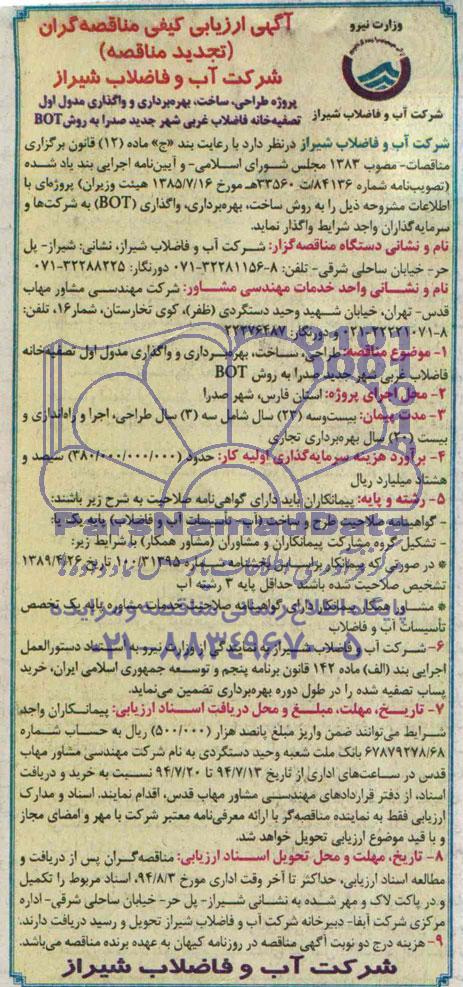 آگهی ارزیابی کیفی مناقصه‌گران
(تجدید مناقصه)
شرکت آب و فاضلاب شیراز
وزارت نیرو
شرکت آب و فاضلاب شیراز
پروژه طراحی، ساخت، بهره‌برداری و واگذاری مدول اول
تصفیه‌خانه فاضلاب غربی شهر جدید صدرا به روش BOT
شرکت آب و فاضلاب شیراز درنظر دارد با رعایت بند «ج» ماده (۱۲) قانون برگزاری
مناقصات- مصوب ۱۳۸۳ مجلس شورای اسلامی- و آیین‌نامه اجرایی بند یاد شده
(تصویب‌نامه شماره ۸۴۱۳۶/ت ۳۳۵۶۰هـ مورخ ۱۳۸۵/۷/۱۶ هیئت وزیران) پروژه‌ای با
اطلاعات مشروحه ذیل را به روش ساخت، بهره‌برداری، واگذاری (BOT) به شرکت‌ها و
سرمایه‌گذاران واجد شرایط واگذار نماید.
نام و نشانی دستگاه مناقصه‌گزار: شرکت آب و فاضلاب شیراز، نشانی: شیراز- پل
حر- خیابان ساحلی شرقی- تلفن: ۸-۳۲۲۸۱۱۵۶-۰۷۱ دورنگار: ۳۲۲۸۸۲۲۵-۰۷۱
نام و نشانی واحد خدمات مهندسی مشاور: شرکت مهندسی مشاور مهاب
قدس- تهران، خیابان شهید وحید دستگردی (ظفر)، کوی تخارستان، شماره ۱۶، تلفن:
۸-۲۲۲۲۱۰۷۱-۰۲۱ و دورنگار: ۲۲۲۷۶۴۸۷
۱- موضوع مناقصه: طراحی، ساخت، بهره‌برداری و واگذاری مدول اول تصفیه‌خانه
فاضلاب غربی شهر جدید صدرا به روش BOT
۲- محل اجرای پروژه: استان فارس، شهر صدرا
۳- مدت پیمان: بیست‌وسه (۲۳) سال شامل سه (۳) سال طراحی، اجرا و راه‌اندازی و
بیست (۲۰) سال بهره‌برداری تجاری
۴- برآورد هزینه سرمایه‌گذاری اولیه کار: حدود (۳۸۰/۰۰۰/۰۰۰/۰۰۰) سیصد و
هشتاد میلیارد ریال
۵- رشته و پایه: پیمانکاران باید دارای گواهی‌نامه صلاحیت به شرح زیر باشند:
- گواهینامه صلاحیت طرح و ساخت (آب- تأسیسات آب و فاضلاب) پایه یک یا:
- تشکیل گروه مشارکت پیمانکاران و مشاوران (مشاور همکار) با شرایط زیر:
* در صورتی که پیمانکار براساس بخشنامه شماره ۱۰۰/۳۱۳۹۵ تاریخ ۱۳۸۹/۴/۲۶
تشخیص صلاحیت شده باشند حداقل پایه ۳ رشته آب
* مشاور همکار پیمانکار دارای گواهینامه صلاحیت خدمات مشاوره پایه یک تخصص
تأسیسات آب و فاضلاب
۶- شرکت آب و فاضلاب شیراز به نمایندگی از وزارت نیرو به استناد دستورالعمل
اجرایی بند (الف) ماده ۱۴۲ قانون برنامه پنجم و توسعه جمهوری اسلامی ایران، خرید
پساب تصفیه شده را در طول دوره بهره‌برداری تضمین می‌نماید.
۷- تاریخ، مهلت، مبلغ و محل دریافت اسناد ارزیابی: پیمانکاران واجد
شرایط می‌توانند ضمن واریز مبلغ پانصد هزار (۵۰۰/۰۰۰) ریال به حساب شماره
۶۷۸۷۹۲۷۸/۶۸ بانک ملت شعبه وحید دستگردی به نام شرکت مهندسی مشاور مهاب
قدس در ساعت‌های اداری از تاریخ ۹۴/۷/۱۳ تا ۹۴/۷/۲۰ نسبت به خرید و دریافت
اسناد، از دفتر قراردادهای مهندسی مشاور مهاب قدس، اقدام نمایند. اسناد و مدارک
ارزیابی فقط به نماینده مناقصه‌گر با ارائه معرفی‌نامه معتبر شرکت با مهر و امضای مجاز
و با قید موضوع ارزیابی تحویل خواهد شد.
۸- تاریخ، مهلت و محل تحویل اسناد ارزیابی: مناقصه‌گران پس از دریافت و
مطالعه اسناد ارزیابی، حداکثر تا آخر وقت اداری مورخ ۹۴/۸/۳، اسناد مربوط را تکمیل
و در پاکت لاک و مهر شده به نشانی شیراز- پل حر- خیابان ساحلی شرقی- اداره
مرکزی شرکت آبفا- دبیرخانه شرکت آب و فاضلاب شیراز تحویل و رسید دریافت دارند.
۹- هزینه درج دو نوبت آگهی مناقصه در روزنامه کیهان به عهده برنده مناقصه می‌باشد.
شرکت آب و فاضلاب شیراز
ParsNamadData
پایگاه اطلاع رسانی مناقصه و مزایده
۰۲۱-۸۸۳۴۹۶۷۰-۵